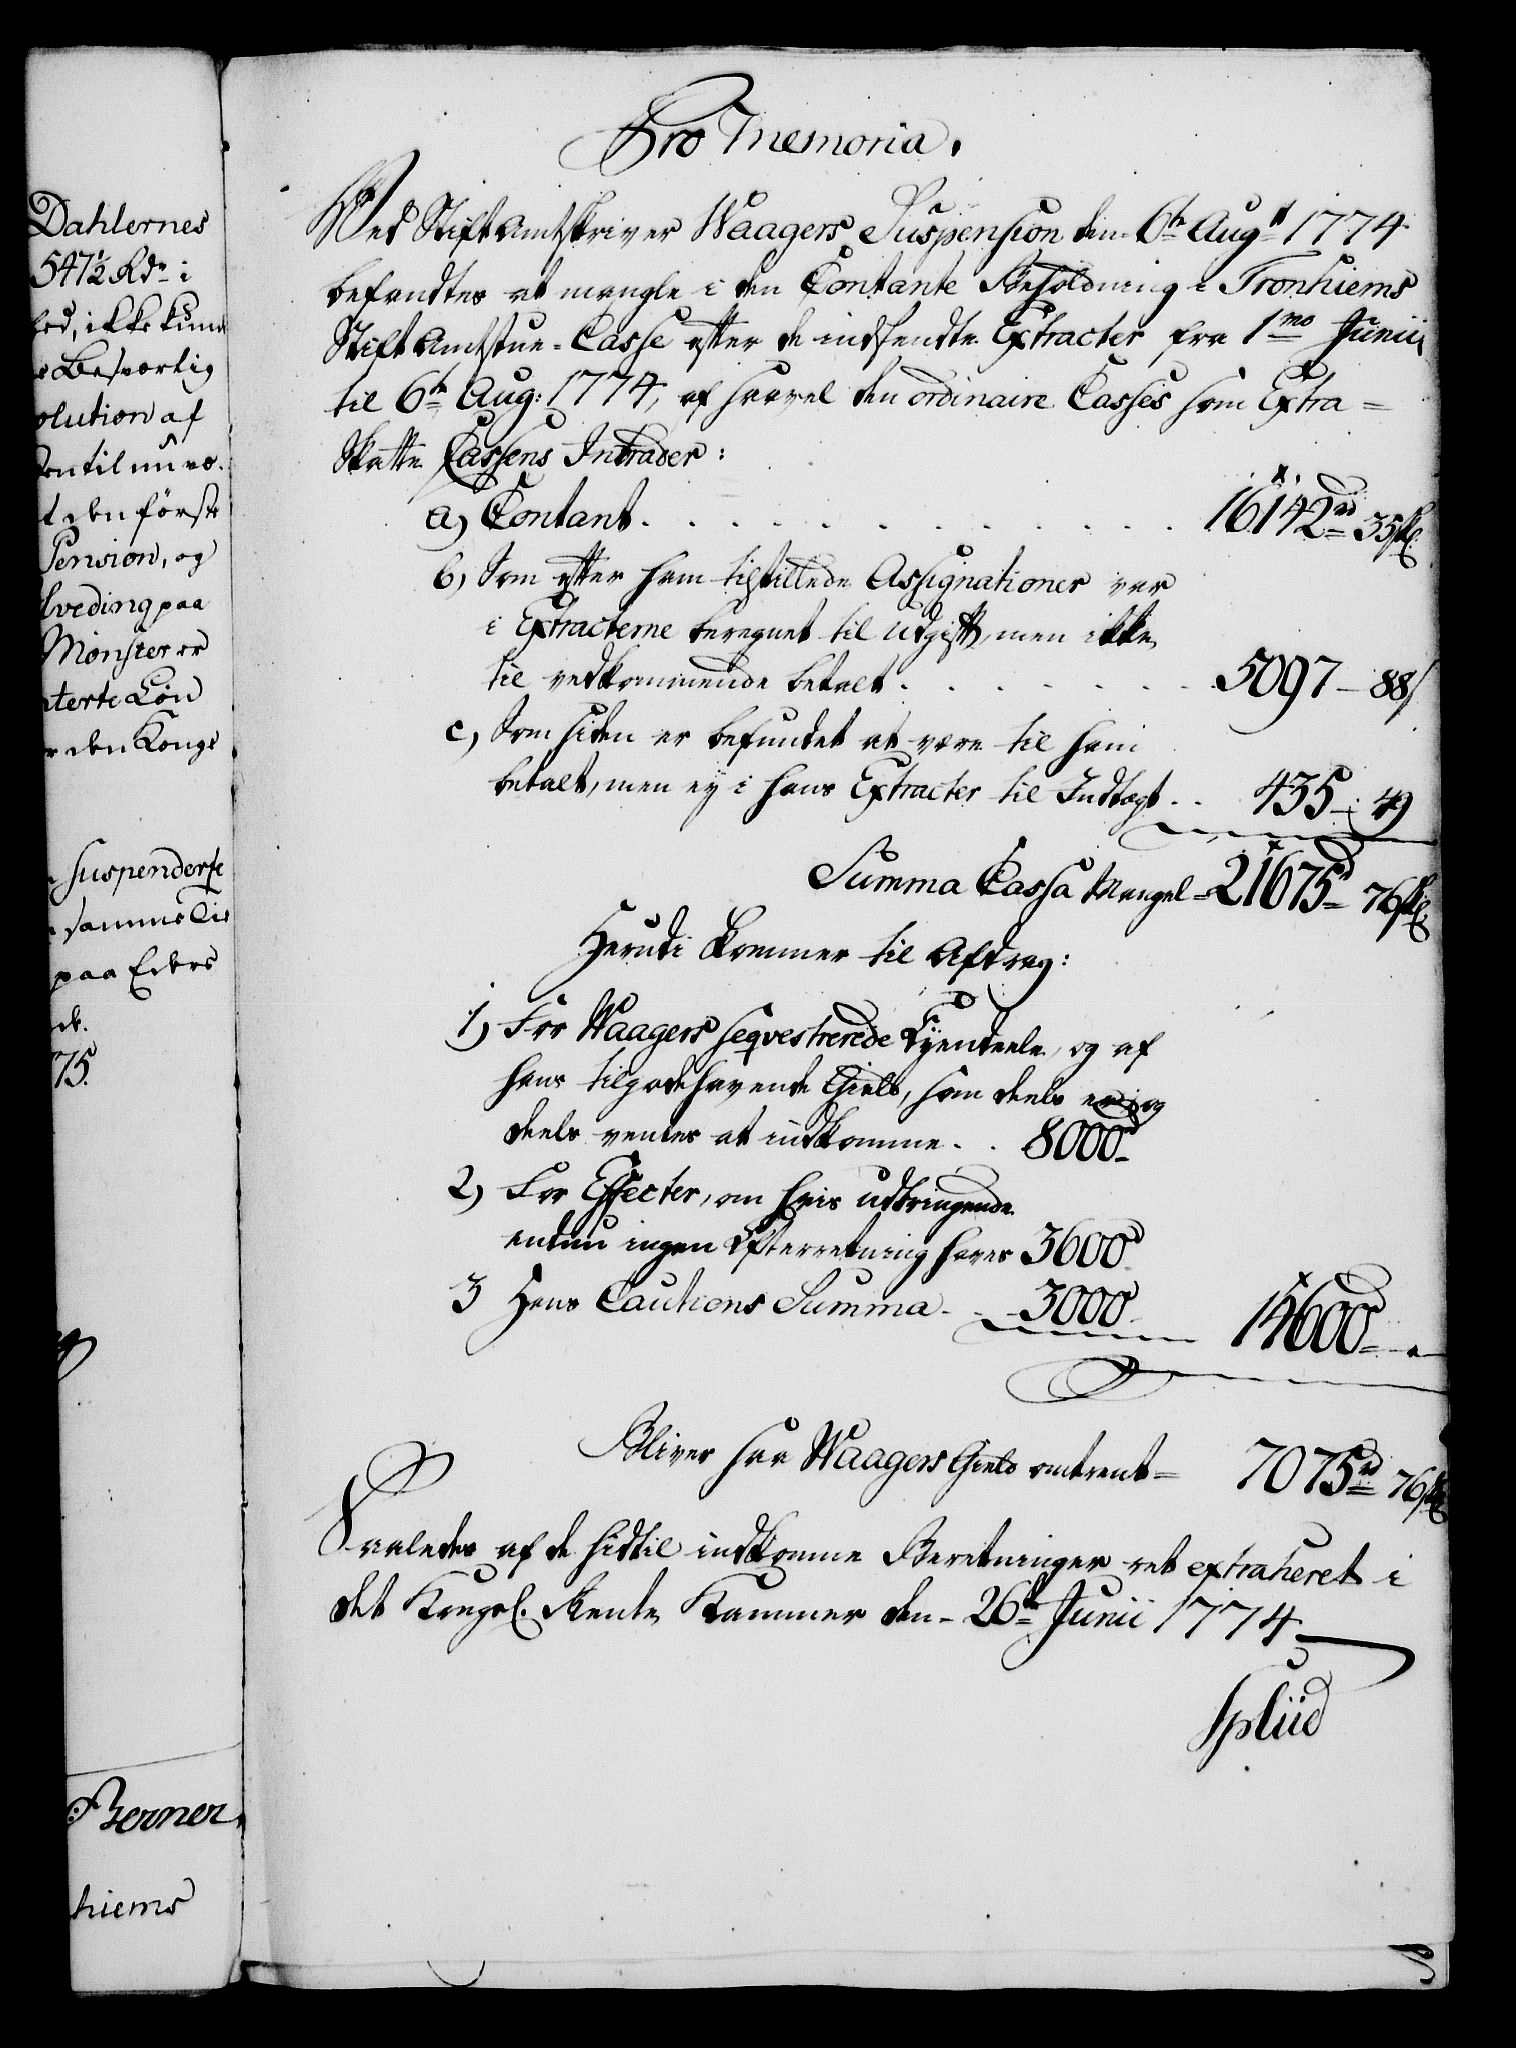 Dahlernes
547½ Rdr i
hed, ikke kund
Besværlig
olution af
en til nu væ-
t den först
Pension, og
lveding paa
Mönster er
terte Lön
r den Kongl
suspenderte
samme Tid
paa Eders
75.
Berner
hiems
Pro Memoria.
Ved StiftAmtskriver Waagers Suspension den 6te Augti 1774
befandtes at mangle i den Contante Beholdning i Tronhiems
StiftAmtstue-Casse efter de indsendte Extracter fra 1mo Junii
til 6te Aug: 1774, af saavel den ordinaire Casses som Extra=
Skatte Cassens Intrader:
a) Contant . . . . . . . . . . 16142rd 35sk.
b) Som efter ham tilstillede Assignationer var
i Extracterne beregnet til Udgift, men ikke
til vedkommende betalt . . . . . . 5097 – 88/
c) Som siden er befundet at være til ham
betalt, men ey i hans Extracter til Indtægt . . 435 – 49
Summa Cassa Mangel = 21675rd 76sk
Herudi kommer til Afdrag:
1) For Waagers seqvestrerede Eyendeele, og af
hans tilgodehavende Gield, som deels er og
deels ventes at indkomme . . 8000rd
2) For Effecter, om hvis udbringende
endnu ingen Efterretning haves 3600rd
3 Hans Cautions Summa . . 3000 14600rd = "
Bliver saa Waagers Gield omtrent = 7075rd 76sk
Saaledes af de hidtil indkomne Beretninger ret extraheret i
det Kongel. Rente Kammer den 26te Junii 1774
Spliid